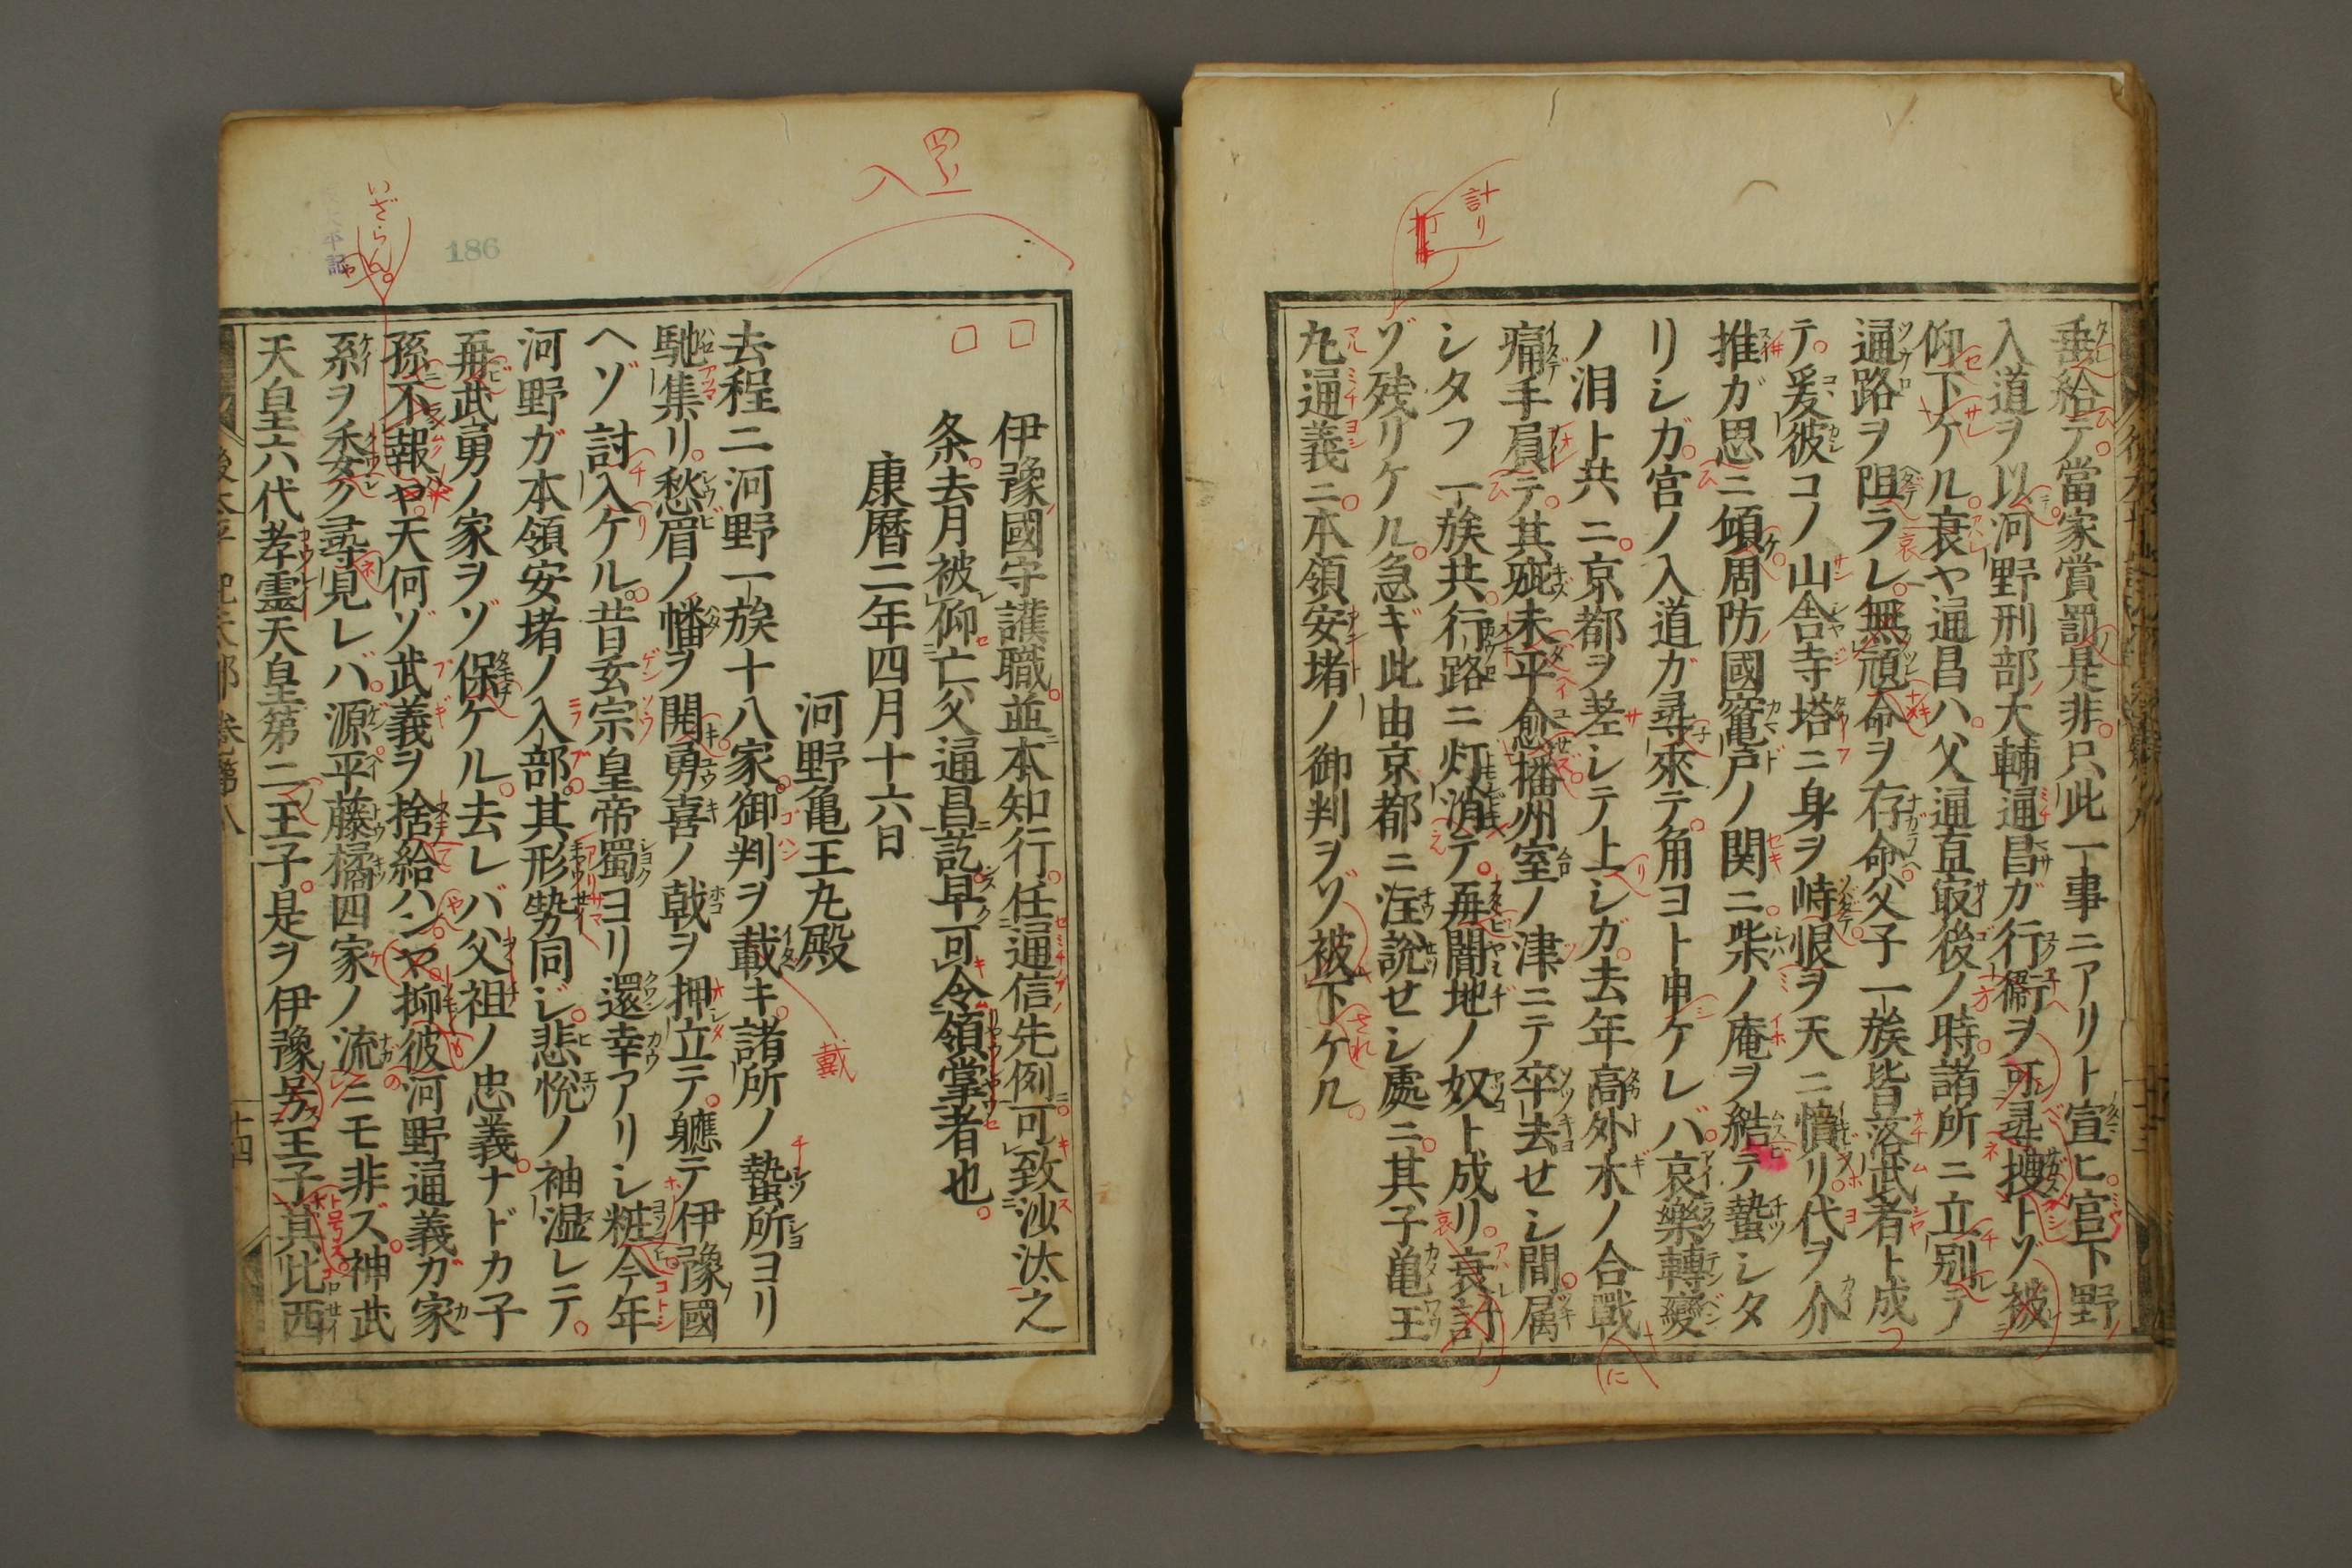 垂給テ當家賞罰是非只此一事ニアリト宣ヒ宮下野
入道ヲ以河野刑部大輔通昌ガ行衞ヲ可尋捜トゾ被
仰下ケル哀ヤ通昌ハ父通直最後ノ時諸所ニ立別テ
通路ヲ阻ラレ無頼命ヲ存命父子一族皆落武者ト成
テ爰彼コノ山舎寺塔ニ身ヲ峙恨ヲ天ニ憤リ代ヲ介
推ガ思ニ傾周防國竈戸ノ関ニ柴ノ庵ヲ結テ蟄シタ
リシガ宮ノ入道ガ尋來テ角ヨト申ケレバ哀樂轉變
ノ泪ト共ニ京都ヲ差シテ上シガ去年高外木ノ合戰
痛手屓テ其疵未平愈播州室ノ津ニテ卒去せシ間属
シタフ一族共行路ニ灯消テ再闇地ノ奴ト成リ哀討
ゾ残リケル急ギ此由京都ニ注説せシ處ニ其子亀王
丸通義ニ本領安堵ノ御判ヲゾ被下ケル
計リ
伊豫國守護職並本知行任通信先例可致沙汰之
条去月被仰亡父通昌訖早可令領掌者也
康暦二年四月十六日
河野亀王丸殿
去程ニ河野一族十八家御判ヲ載キ諸所ノ蟄所ヨリ
馳集リ愁眉ノ幡ヲ開勇喜ノ戟ヲ押立テ軈テ伊豫國
ヘゾ討入ケル昔玄宗皇帝蜀ヨリ還幸アリシ粧今年
河野ガ本領安堵ノ入部其形勢同ジ悲悦ノ袖湿レテ
再武勇ノ家ヲゾ保ケル去レバ父祖ノ忠義ナドカ子
孫不報ヤ天何ゾ武義ヲ捨給ハンヤ抑彼河野通義ガ家
系ヲ委ク尋見レバ源平藤橘四家ノ流ニモ非ズ神武
天皇六代孝靈天皇第二王子是ヲ伊豫男王子其此西
戴
入
いざらん。
186